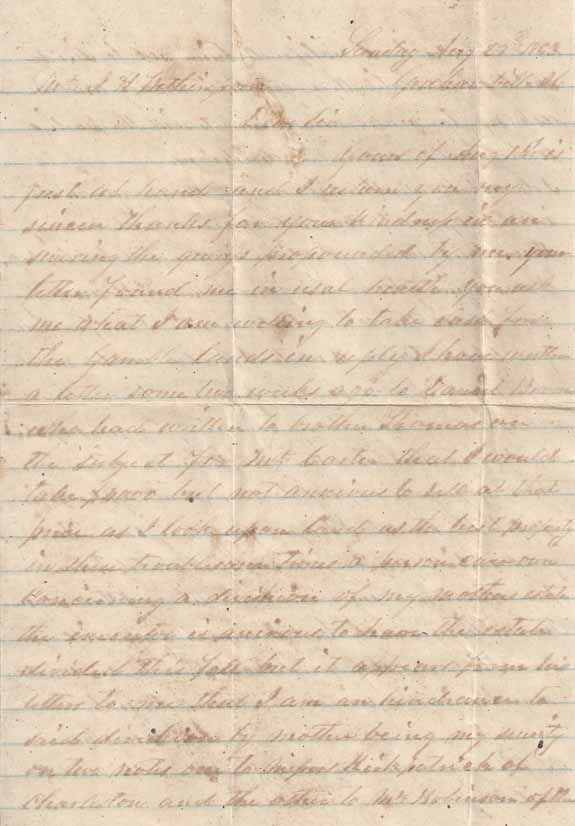 Sunday Aug 23rd 1863
Mr J H
Dear Sir
Yours of Aug 1st is
just at hand and I return you my
sincere thanks for your kindness in an
swering the querys propounded by me your
letter found me in usal health. You ask
me what I am willing to take cash for
the Gamble lands in reply I have written
a letter some two weeks ago to Daniel
who had written to brother Thomas on
the subject for Mr Carter that I would
take but not anxious to sell at that
price as I look upon land as the best property
in these troublesome times a person can own
Concerning a division of my mothers estate
the executor is anxious to have the estate
divided this fall but it appears from his
letter to me that I am an hindrance to
said division by mother being my surity
on two notes one to Kirkpatrick of
Charleston and the other to Mr Robinson of